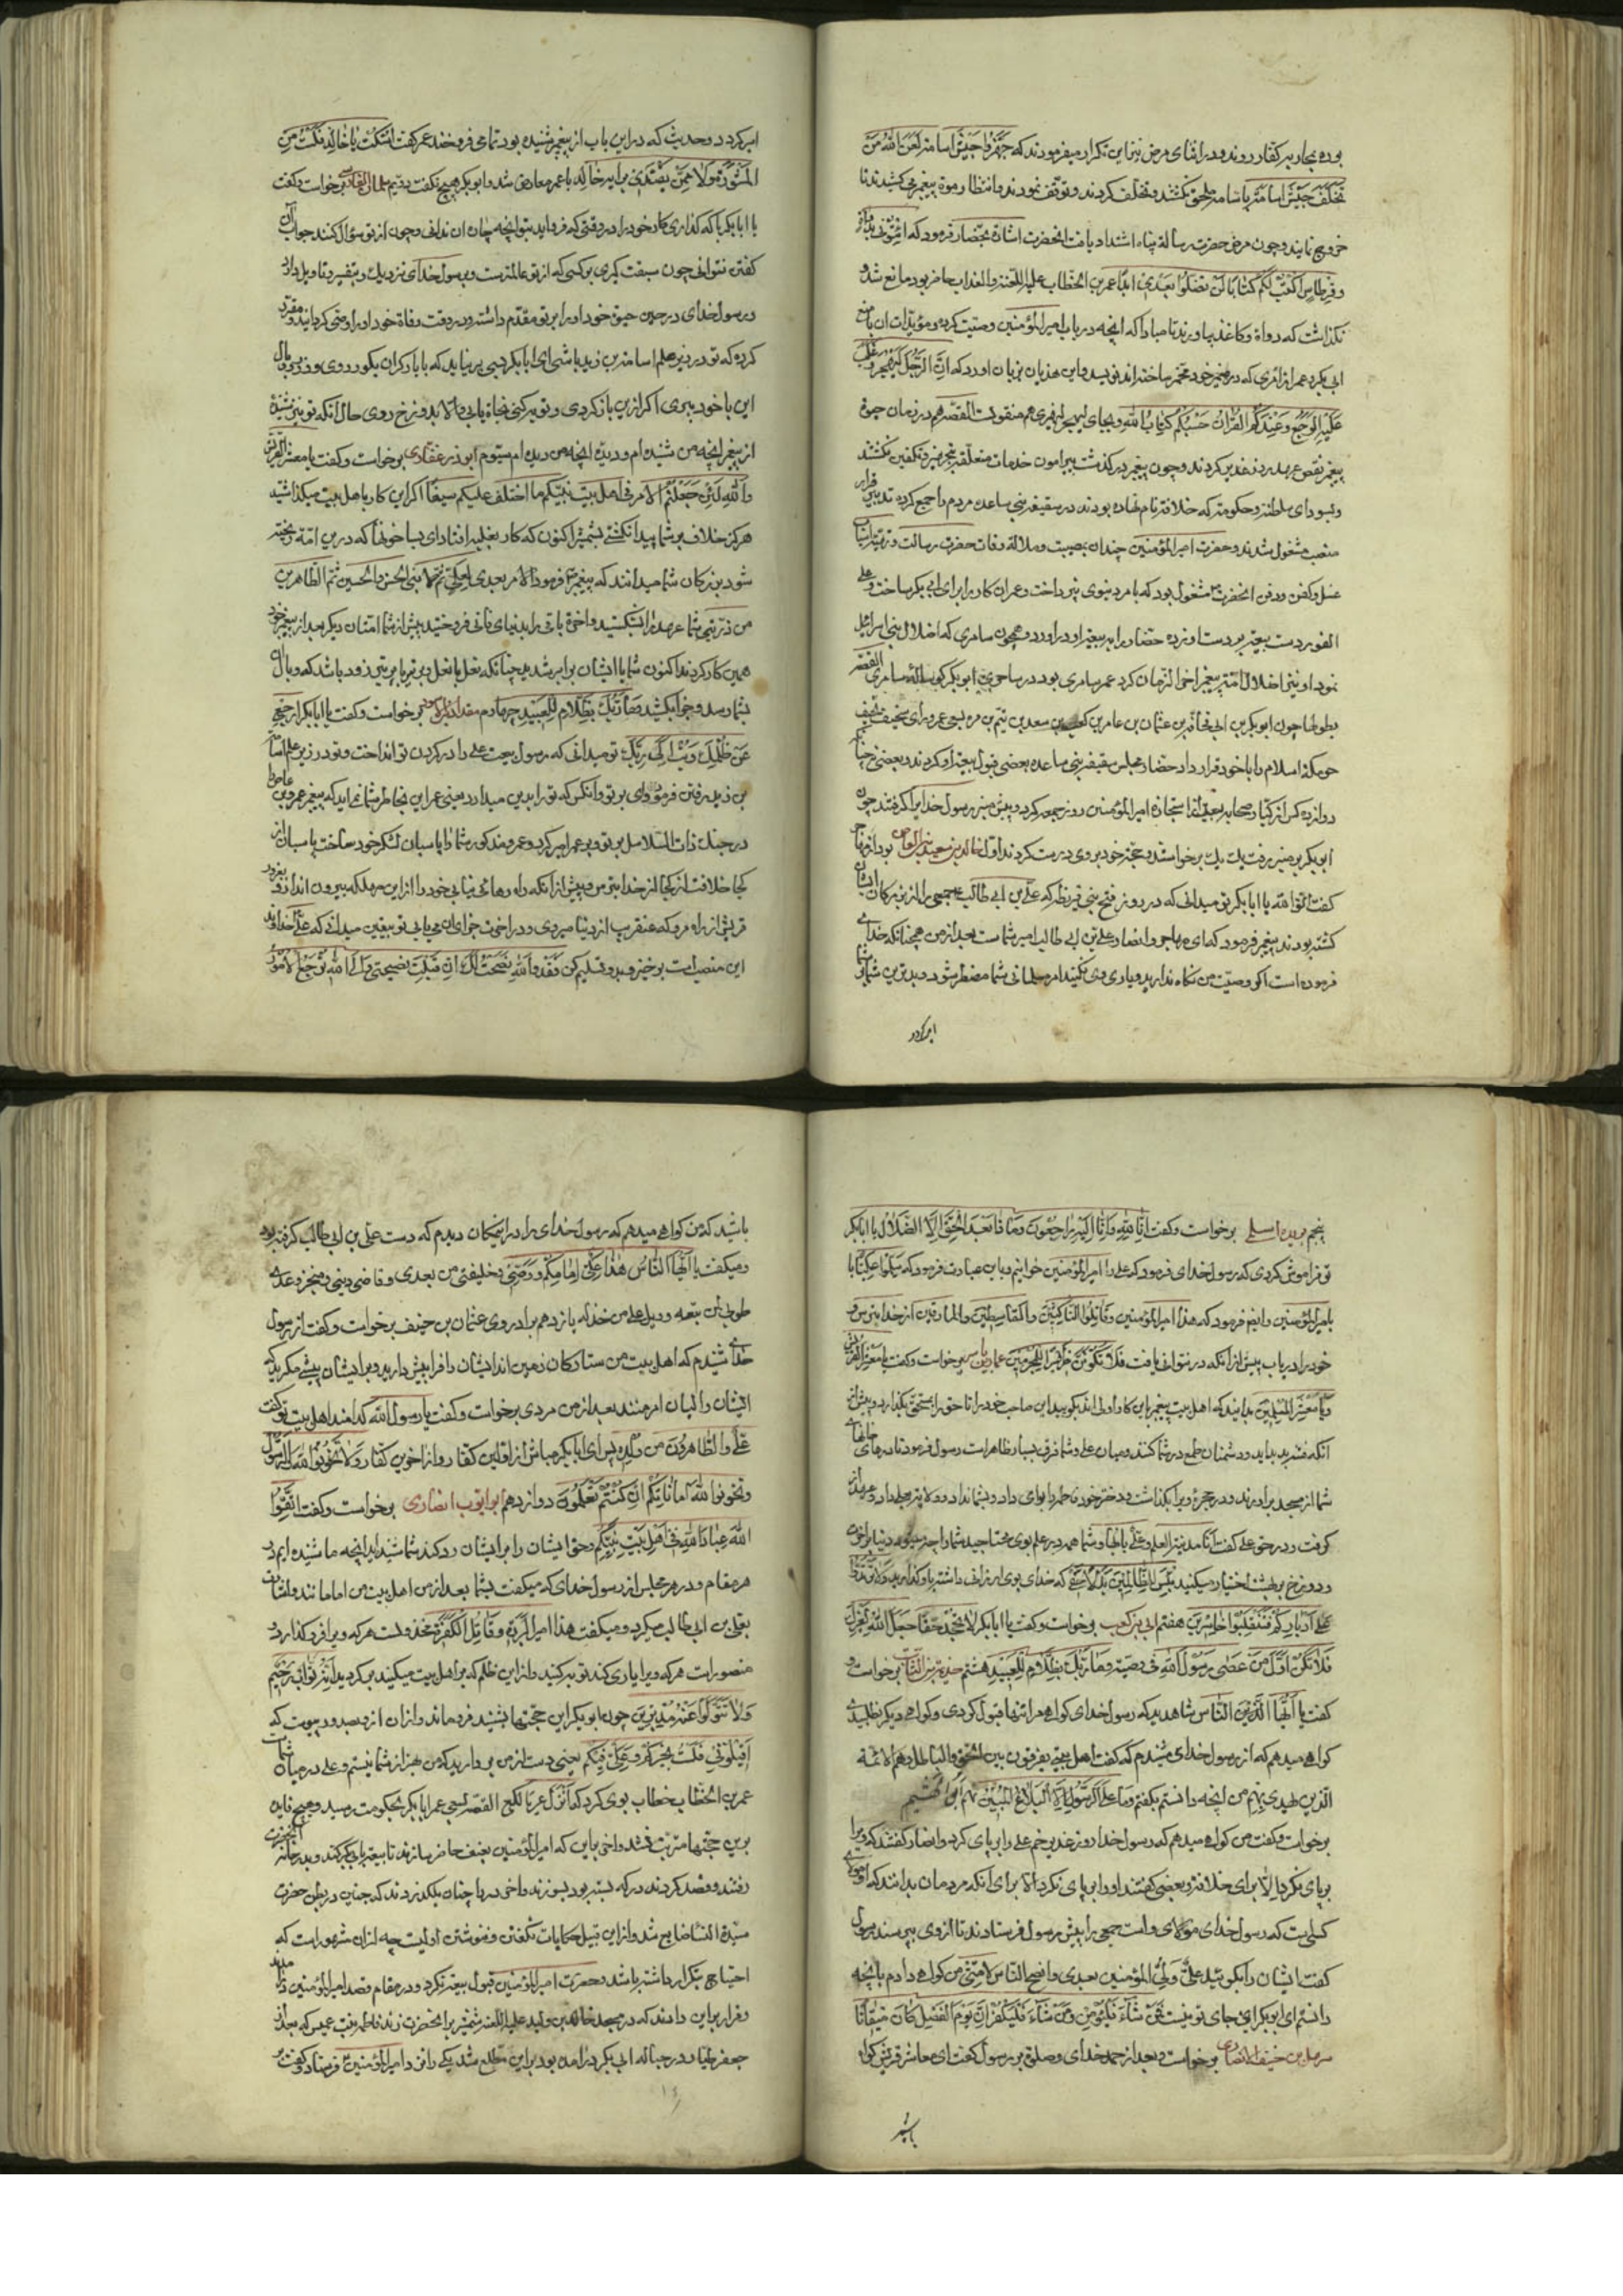 بوده بمحاربه کفار روند و در اثنای مرض نیز این تکرار میفرمودند که جهّزوا جیش اسامة لعن الله من
تخلّف جیش اسامة با اسامه ملحق نکشتند و تخلف کردند و توقف نمودند و انتظار موت پیغمبر می کشیدند تا
خروج نمایند و چون مرض حضرت رسالت پناه اشتداد یافت انحضرت اشارة بحضار فرمود که ائتونی بدواة
و قرطاس اکتب لکم کتابا لن تضلوا بعدی ابدا عمر بن الخطاب علیه اللعنة والعذاب حاضر بود مانع شد و
نکذاشت که دواة و کاغذ بیاورند تا مبادا که انچه در باب امیرالمؤمنین وصیت کرده و مؤیدات ان با منع
ابی بکر و عمر از امری که در ضمیر خود مخمر ساخته اند نویسد و این هذیان بزبان اورد که انّ الرجل لیهجر و غلب
علیه الوجع و عندکم القران حسبکم کتاب الله و بجای لیهجر لیهذی هم منقولست القصه هم در زمان حیوة
پیغمبر نقض عهد روز غدیر کردند و چون پیغمبر درکذشت پیرامون خدمات متعلقه بتجهیز و تکفین نکشتند
و بسودای سلطنت و حکومت که خلافت نام نهاده بودند در سقیفه بنی ساعده مردم را جمع کرده تدبیر قرار
منصب مشغول شدند و حضرت امیرالمؤمنین چندان بمصیبت و ملالة وفات حضرت رسالت و ترتیب اسباب
غسل و کفن و دفن انحضرت مشغول بود که بامر دنیوی نپرداخت و عمر ان کار برای ابی بکر ساخت و علی
الفور دست بیعت بر دست او زده حضار را به بیعت او در اورد و همچون سامری که اضلال بنی اسرائیل
نمود او نیز اضلال امة پیغمبر اخر الزمان کرد عمر سامری بود در ساحری ابو بکر کوساله سامری القصه
بطولها چون ابو بکر بن ابی قحافه بن عثمان بن عامر بن کعب بن سعد بن تیم بن مره بسعی عمر و رای سخیف
حوزه اسلام را با خود قرار داد حضار مجلس سقیفه بنی ساعده بعضی قبول بیعت او کردند و بعضی
دوازده کس از کبار صحابه بعد از استجازه امیرالمؤمنین روز جمعه کرد و پیش منبر رسول خدا را کرفتند چون
ابو بکر بر منبر رفت یک یک برخواستند و حجة خود بر وی درست کردند اول خالد بن سعید بن العاص بود
کفت اتقوا الله یا ابا بکر تو میدانی که در روز فتح بنی قریظه که علی بن ابی طالب جمعی را از بزرکان ایشان
کشته بودند پیغمبر فرمود که ای مهاجر و انصار علی بن ابی طالب امیر شماست بعد از من همچنانکه خدای
فرموده است اکر وصیت من نکاه ندارید و یاری وی نکنید امر مسلمانی شما مضطر شود و بدترین شما بر شما
امیر کردد
امیر کردد و حدیث که در این باب از پیغمبر شنیده بود تمامی فرو خواند عمر کفت اسکت یا خالد فلست من
المشورة ولا ممن یقتدی برایه خالد با عمر معارض شد و ابو بکر هیچ نکفت دویم سلمان الفارسی برخواست و کفت
یا ابا بکر با که کذاری کار خود را در وقتی که فرو اید بتو انچه چاره ان ندانی و چون از تو سؤال کنند جواب ان
کفتن نتوانی چون سبقت کیری بر کسی که از تو عالم ترست و برسول خدای نزدیک و بتفسیر و تاویل دانا
و رسول خدای در حین حیوة خود او را بر تو مقدم داشته و در وقت وفاة خود او را وصی کردانیده و مقرر
کرده که تو در زیر علم اسامة بن زید باشی ای ابا بکر دیری بر نیاید که با بار کران بکور روی و وزر و وبال
این با خود ببری اکر ازین بازکردی و توبه کنی نجاة یابی و الا بدوزخ روی حال آنکه تو نیز شنیدهٔ
از پیغمبر انچه من شنیده ام و دیدهٔ انچه من دیده ام سیوم ابوذر غفاری برخواست و کفت یا معشر القریش
والله لئن جعلتم الامر فی اهل بیت نبیکم ما اختلف علیکم سیفا اکر این کار با اهل بیت میکذاشتید
هرکز خلاف بر شما پیدا نکشتی بشمشیر اکنون که کار بغلبه افتاد ای بسا خونها که درین امة ریخته
شود بزرکان شما میدانند که پیغمبر فرمود الامر بعدی لعلی ثم لابنی الحسن والحسین ثم الطاهرین
من ذریتی شما عهد را شکستید و اخرة باقی را بدنیای فانی فروختید پیش از شما امتان دیکر بعد از پیغمبر خود
همین کار کردند اکنون شما با ایشان برابر شدید چنانکه نعل با نعل و تیر با تیر زود باشد که وبال
بشما رسد و جزا بکشید و ما ربک بظلام للعبید چهارم مقداد اسود برخواست و کفت یا ابا بکر ارجع
عن ظلمک و تب الی ربک تو میدانی که رسول بیعت علی را در کردن تو انداخت و تو را در زیر علم اسامة
بن زید رفتن فرمود و ای بر تو و آنکس که تو را بدین میدارد یعنی عمر این بخاطر شما نمی اید که پیغمبر عمرو بن عاص را
در جنک ذات السلاسل بر تو و بر عمر امیر کرد و عمرو مذکور شما را پاسبان لشکر خود ساخت پاسبان از
کجا خلافت از کجا از خدا بترس و پیش از آنکه راه رهائی نیابی خود را از این مهلکه بیرون انداز و بغرور
قریش از راه مرو که عنقریب از دنیا میروی و در اخرت جزای ان می یابی تو بیقین میدانی که علی خداوند
این منصب است برخیز و بدو تسلیم کن فقد والله نصحت لک ان قبلت نصیحتی والی الله ترجع الامور
پنجم بریده اسلمی برخواست و کفت انا لله وانا الیه راجعون وماذا بعد الحق الا الضلال یا ابا بکر
تو فراموش کردی که رسول خدای فرمود که علی را امیرالمؤمنین خوانیم و باین عبارت فرمود که سلموا علی علی
بامیرالمؤمنین و ایضا فرمود که هذا امیرالمؤمنین وقاتلوا الناکثین والقاسطین والمارقین از خدا بترس و
خود را دریاب پیش از آنکه در نتوانی یافت فلا تکونن ظهیرا للمجرمین عمار بن یاسر برخواست و کفت یا معشر القریش
ویا معشر المسلمین بدانید که اهل بیت پیغمبر باین کار اولی اند بکویید این صاحب خود را تا حق را بمستحق بکذارد پیش از
آنکه فتنه پدید اید و دشمنان طمع در شما کنند و میان علی و شما فرق بسیار ظاهر است رسول فرمود تا درهای خانهای
شما از مسجد برآورند و در حجرهٔ ویرا بکذاشت و دختر خود فاطمه را بوی داد و بشما نداد
کرفت و در حق علی کفت انا مدینة العلم وعلی بابها و شما همه در علم بوی محتاجید شما را چه میشود دنیا بر اخرت
و دوزخ بر بهشت اختیار میکنید بئس للظالمین بدلا حقی که خدای بوی ارزانی داشته باو کذارید ولا ترتدوا
علی ادبارکم فتنقلبوا خاسرین هفتم ابی بن کعب برخواست و کفت یا ابا بکر لا تجحد حقا جعل الله لغیرک
فلا تکن اول من عصی رسول الله فی وصیته وما ربک بظلام للعبید هشتم خزیمة بن الثابت برخواست و
کفت یا ایها الناس شاهدید که رسول خدای کواهی مرا تنها قبول کردی و کواهی دیکر نطلبیدی
کواهی میدهم که از رسول خدای شنیدم که کفت اهل بیتی یفرقون بین الحق والباطل وهم الائمة
الذین یقتدی بهم من انچه دانستم بکفتم وما علی الرسول الا البلاغ المبین نهم ابو الهیثم
برخواست و کفت من کواهی میدهم که رسول خدا روز غدیر خم علی را بر پای کرد و انصار کفتند که ویرا
بر پای نکرد الا برای خلافت و بعضی کفتند او را بر پای نکرد الا برای آنکه مردمان بدانند که او مولای
کسی است که رسول خدای مولای اوست جمعی را پیش رسول فرستادند تا از وی بپرسند رسول
کفت ایشان را بکویید علی ولی المؤمنین بعدی وانصح الناس لامتی من کواهی دادم بانچه
دانستم ای ابو بکر این جای تو نیست فمن شاء فلیؤمن ومن شاء فلیکفر ان یوم الفصل کان میقاتا
سهل بن حنیف الانصاری برخواست و بعد از حمد خدای و صلوة بر رسول کفت ای معاشر قریش کواه
باشید
باشید که من کواهی میدهم که رسول خدای را در اینمکان دیدم که دست علی بن ابی طالب کرفته بود
و میکفت یا ایها الناس هذا علی امامکم ووصیی وخلیفتی من بعدی وقاضی دینی ومنجز وعدی
طوبی لمن تبعه وویل علی من خذله یازدهم برادر وی عثمان بن حنیف برخواست و کفت از رسول
خدای شنیدم که اهل بیت من ستارکان زمین اند ایشان را فرا پیش دارید و بر ایشان پیشی مکیرید که
ایشان والیان امر منند بعد از من مردی برخواست و کفت یا رسول الله کدامند اهل بیت تو کفت
علی والطاهرون من ولده پس ای ابا بکر مباش از اولین کفار و از اخرین کفار ولا تخونوا الله والرسول
وتخونوا اماناتکم ان کنتم تعلمون دوازدهم ابو ایوب انصاری برخواست و کفت اتقوا
الله عباد الله فی اهل بیت نبیکم و حق ایشان را بر ایشان رد کنید شما شنیده اید انچه ما شنیده ایم در
هر مقام و در هر مجلس از رسول خدای که میکفت بشما بعد از من اهل بیت من امامانند و اشارت
بعلی بن ابی طالب میکرد و میکفت هذا امیر البررة وقاتل الکفرة مخذولست هر که ویرا فروکذارد و
منصورست هر که ویرا یاری کند توبه کنید و از این ظلم که بر اهل بیت میکنید برکردید ان الله تواب رحیم
ولا تتولوا عنه مدبرین چون ابو بکر این حجتها بشنید فرو ماند و از ان
اقیلونی فلست بخیرکم وعلی فیکم یعنی دست از من بردارید که من بهتر از شما نیستم و علی در میان شماست
عمر بن الخطاب خطاب بوی کرد که انزل عنها یا لکع القصه بسعی عمر ابا بکر بحکومت رسید و هیچ فایده
برین حجتها مترتب نشد و اخر باین که امیرالمؤمنین بعنف حاضر سازند تا بیعت با ابی بکر کند و بدر خانه انحضرت
رفتند و قصد کردند در که بسته بود بسوزند و اخر در را چنان بلکد زدند که جنین در بطن حضرت
سیدة النساء ضایع شد و از این قبیل حکایات نکفتن و ننوشتن اولیست چه از ان مشهورتر است که
احتیاج بتکرار داشته باشد و حضرت امیرالمؤمنین قبول بیعت نکرد و در مقام قصد امیرالمؤمنین شدند
و قرار براین دادند که در مسجد خالد بن ولید علیه اللعنة شمشیر بر انحضرت زند فاطمه بنت عمیس که بعد از
جعفر طیار در حباله ابی بکر درآمده بود براین مطلع شد یکی را نزد امیرالمؤمنین فرستاد و کفت